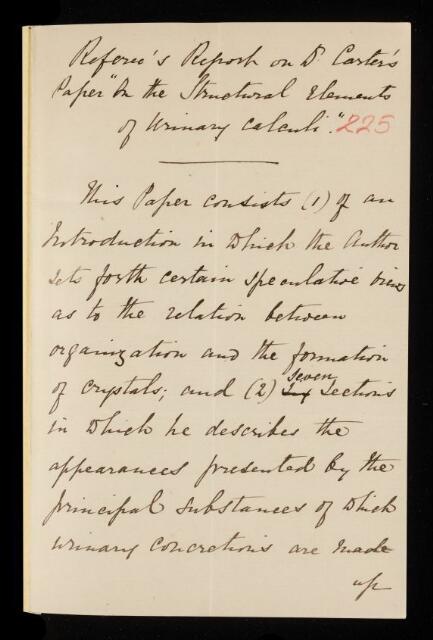 Referee's Report on Dr Carter's
Paper "On the Structural Elements
of Urinary Calculi." 225
This Paper consists (1) of an
Introduction in which the Author
sets forth certain speculative views
as to the relation between
organization and the formation
of crystals; and (2) seven Sections
in which he describes the
appearances presented by the
principal substances of which
urinary concretions are made
up